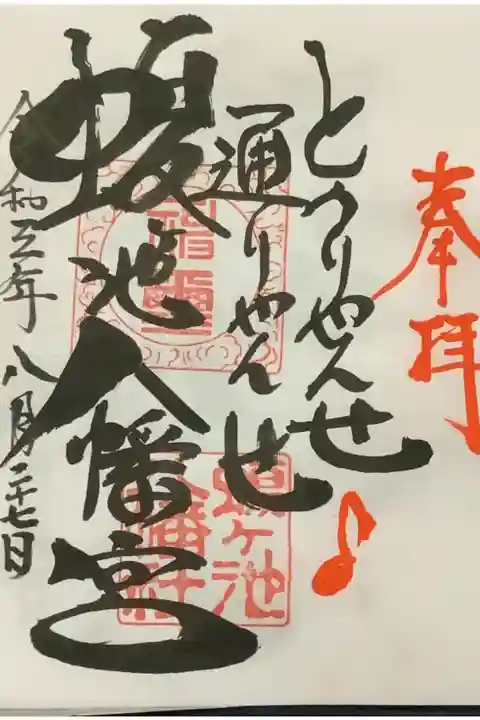 奉拝
とうりやんせ♪
通りやんせ
蝮ヶ池八幡宮
蝮ヶ池
八幡社
令和五年八月二十七日